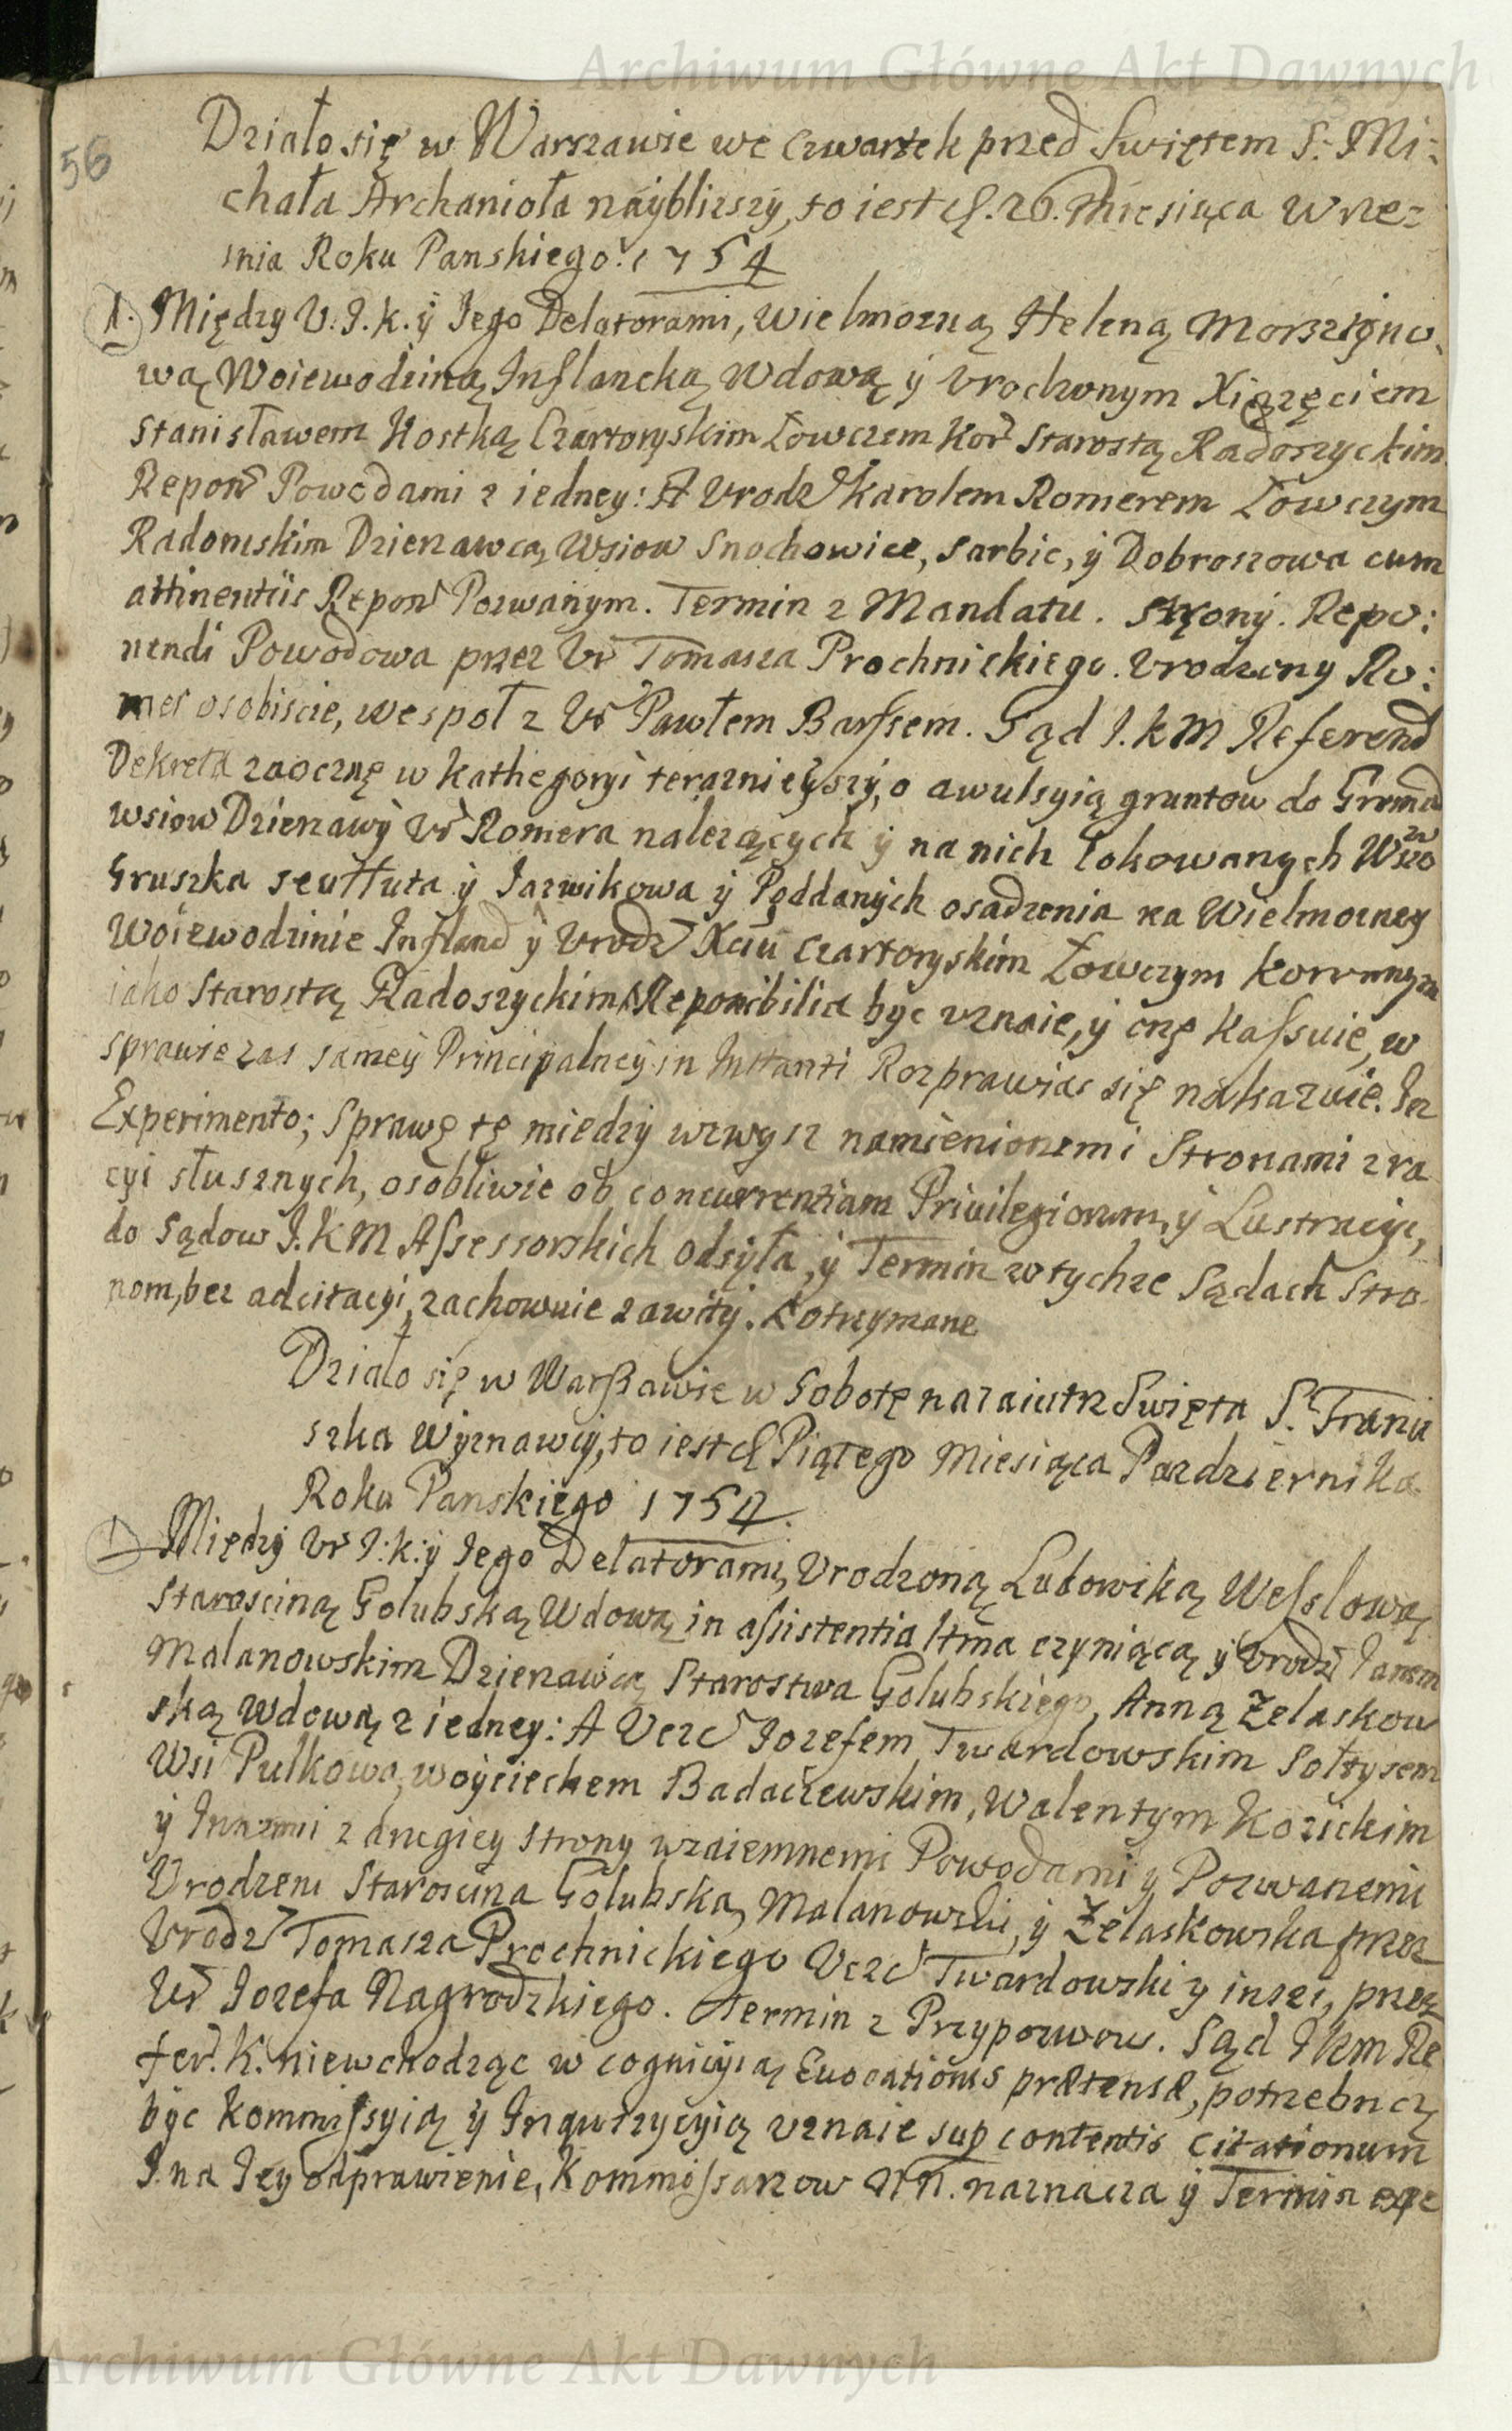 Archiwum Główne Akt Dawnych
56
Działo się w Warszawie we Czwartek przed Swiętem S. Mi:
chała Archanioła nayblizszy, to iest d. 26. Miesiąca Wrze=
snia Roku Panskiego. 1754
1. Między U. I. k. ÿ Iego Delatorami, Wielmozną Heleną Morsztyno
wą Woiewodziną Inflancką Wdową ÿ Urodzonym Xiązęciem
Stanisławem Kostką Czartoryskim Łowczem Kor Starostą Radoszyckim
Repon Powodami z iedney: A Urodz Karolem Romerem Łowczym
Radomskim Dzierzawcą Wsiow Snochowice, Sarbic, ÿ Dobroszowa cum
attinentiis Repon Pozwanym. Termin z Mandatu. Strony. Repo:
nendi Powodowa przez Ur Tomasza Prochnickiego. Urodzony Ro:
mer osobiscie, wespoł z Ur Pawłem Barssem. Sąd I. K M Referend
Dekreta zaocznę w kathegoryi teraznieyszÿ, o awulsyią gruntow do Gromad
wsiow Dzierzawÿ Ur Romera nalezących ÿ na nich lokowanych Wsio
w
Gruszka seu Huta ÿ Jazwikowa ÿ Poddanÿch osadzenia na Wielmozney
Woiewodzinie Infland ÿ Urodz Xciu Czartoryskim Łowczym Koronnym
iako Starostą Radoszyckim Reponibilia byc uznaie, ÿ onę kassuie, w
sprawie zas sameÿ Principalneÿ in Instanti Rozprawiac się nakazuie. In
Experimento; Sprawę tę miedzÿ wzwysz namienionemi Stronami z ra
cyi słusznych, osobliwie ob concurrentiam Privilegiorum, ÿ Lustracyi,
do Sądow I. K M Assessorskich odsÿła, ÿ Termin w tychze Sądach Stro
nom, bez adcitacyi, zachowuie zawitÿ. Kotrzymane
Działo się w Warszawie w Sobotę nazaiutrz Swięta S. Franci
szka Wÿznawcÿ, to iest d Piątego Miesiąca Pazdziernika
Roku Panskiego 1754.
1 Międzÿ Ur I: k: ÿ Iego Delatorami, Urodzoną Ludowiką Wesslową
Staroscinąą Golubską Wdową in assistentia Itma czyniącą ÿ Urodz Janem
Malanowskim Dzierzawcą Starostwa Golubskiego, Anną Zelaskow
ską Wdową z iedney: A Uczc Iozefem Twardowskim Sołtysem
Wsi Pulkowa, Woÿciechem Badaczewskim, Walentym Kozickim
ÿ Innemi z drugiey strony wzaiemnemi Powodami ÿ Pozwanemi
Urodzeni Staroscina Golubska, Malanowski, ÿ Żelaskowska przez
Urodz Tomasza Prochnickiego Uczc Twardowski y inszi, przez
Ur Iozefa Nagrodzkiego. Termin z Przypozwow. Sąd I K m Re
fer. K. niewchodząc w cognicyią Evocationis prætensæ, potrzebną
byc Kommissyią ÿ Inqwizycyią uznaie sup contentis citationum
I. na Iey odprawienie, Kommissarzow NN. naznacza ÿ Termin
Archiwum Główne Akt Dawnych